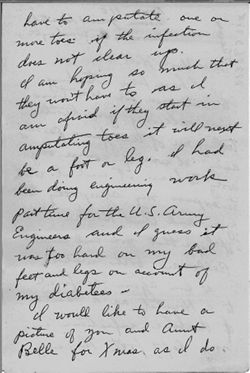 have to amputate one or
more toes if the infection
does not clear up.
I am hoping so much that
they won't have to as I
am afraid if they start in
amputating toes it will next
be a foot or leg. I had
been doing engineering work
part time for the U.S. Army
Engineers and I guess it
was too hard on my bad
feet and legs on account of
my diabetees -
I would like to have a
picture of you and Aunt
Belle for Xmas as I do